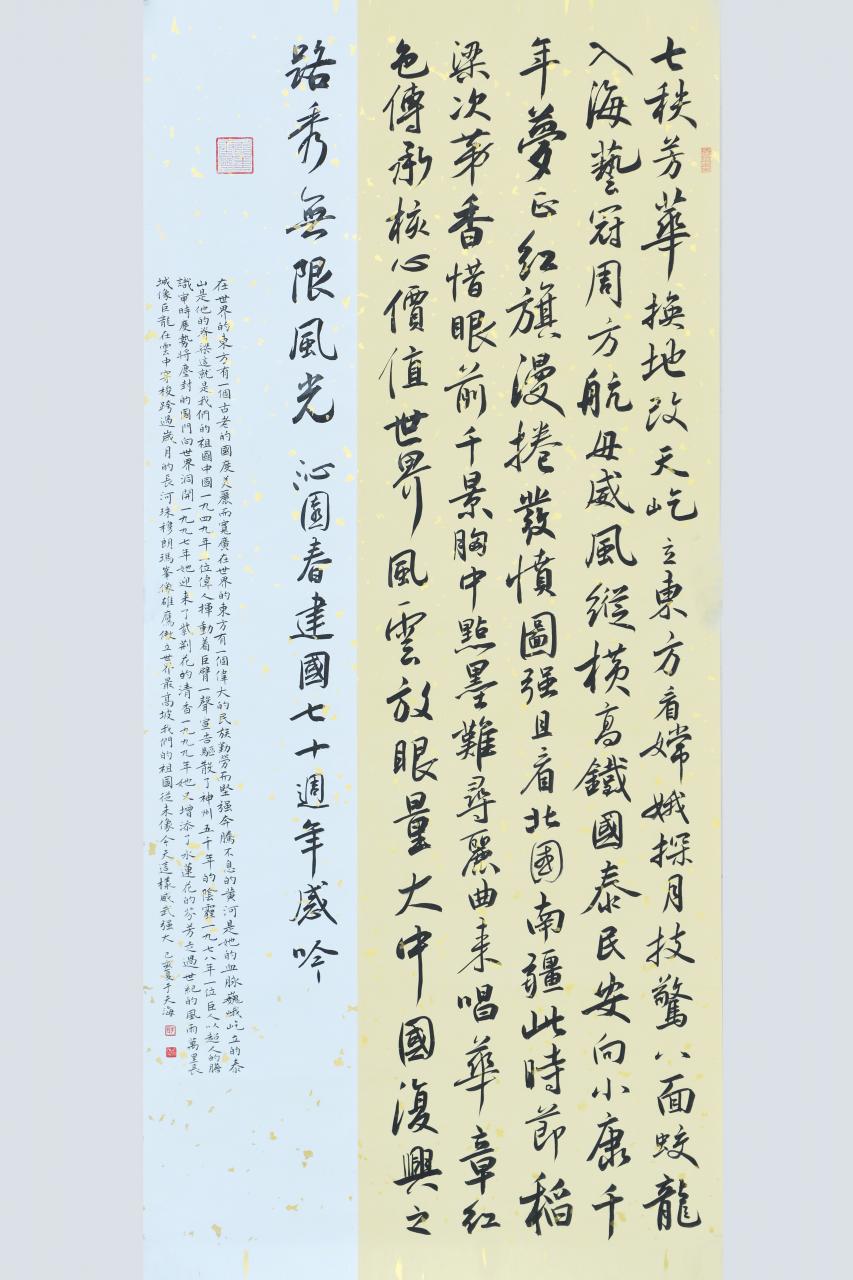 七秩芳華換地改天屹立東方看嫦娥探月技驚八面蛟龍
入海藝冠周方航母威風縱橫高鐵國泰民安向小康千
年夢正紅旗漫捲發憤圖强且看北國南疆此時節稻
梁次第香惜眼前千景胸中點墨難尋麗曲来唱華章紅
色傳承核心價值世界風雲放眼量大中國復興之
路秀無限風光 沁園春建國七十週年感吟
在世界的東方有一個古老的國度美麗而寬廣在世界的東方有一個偉大的民族勤勞而堅强奔騰不息的黄河是她的血脉巍峨屹立的泰
山是他的脊梁這就是我們的祖國中國一九四九年一位偉人揮動着巨臂一聲宣告驅散了神州五千年的陰霾一九七八年一位巨人以超人的膽
識審時度勢將塵封的國門向世界洞開一九九七年她迎来了紫荆花的清香一九九九年她又增添了水蓮花的芬芳走過世紀的風雨萬里長
城像巨龍在雲中穿梭跨過歲月的長河珠穆朗瑪峯像雄鷹傲立世界最高坡我們的祖國從未像今天這樣威武强大 己亥夏于天海